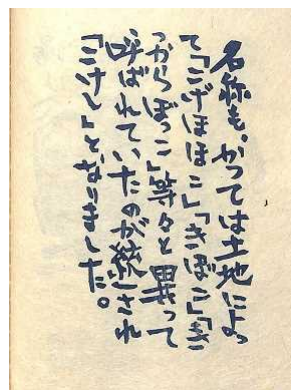 名称も、かつては土地によっ
て「こげほほこ」「きぼこ」「き
っからぼっこ」等々と異って
呼ばれていたのが統一され
「こけし」となりました。